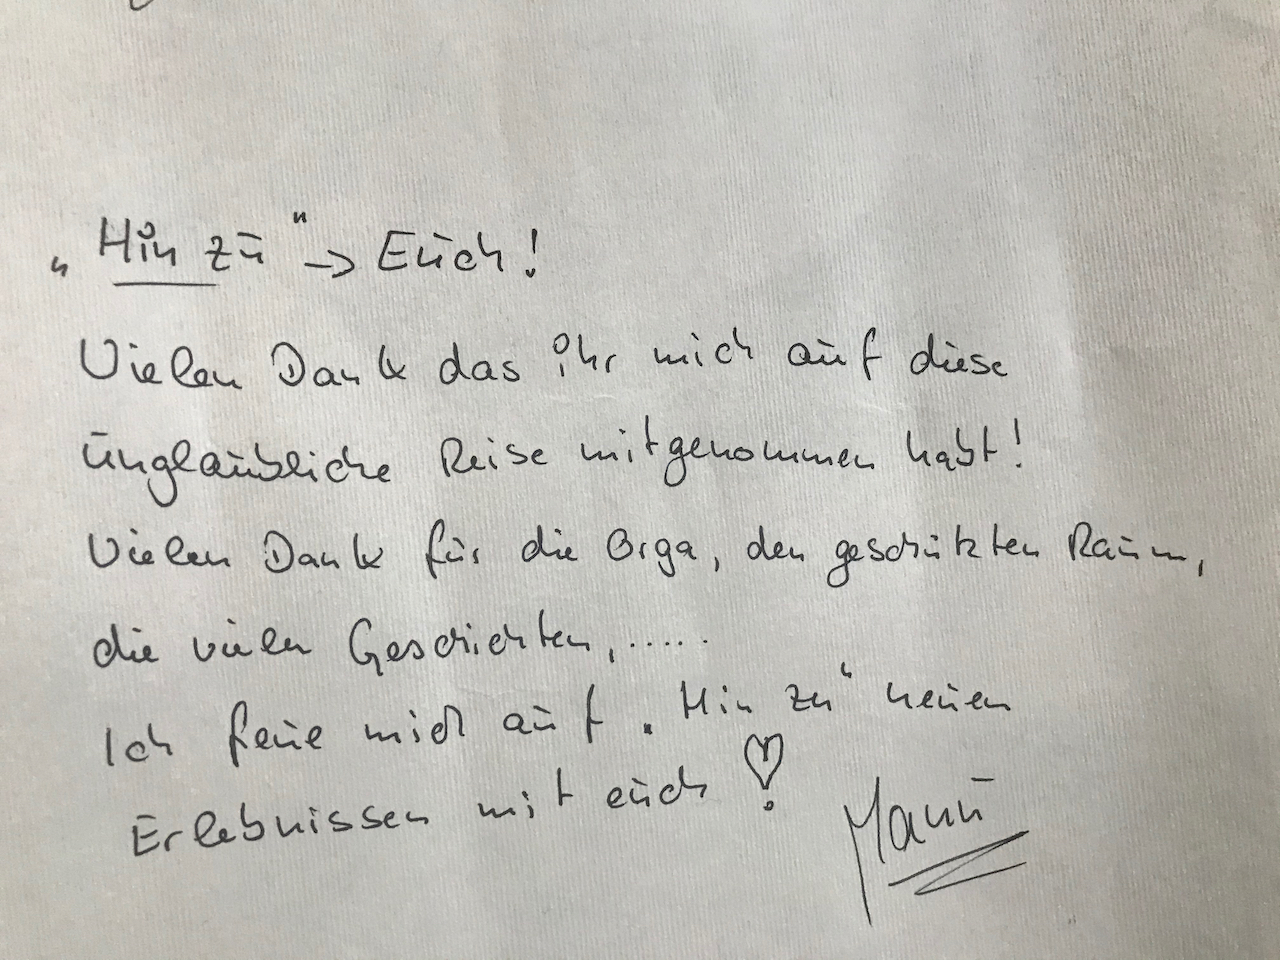 „Hin zu" → Euch!
Vielen Dank das ihr mich auf diese
unglaubliche Reise mitgenommen habt!
Vielen Dank für die Orga, den geschützten Raum,
die vielen Geschichten, .....
Ich freue mich auf „Hin zu" neuen
Erlebnissen mit euch ♡!
Manu